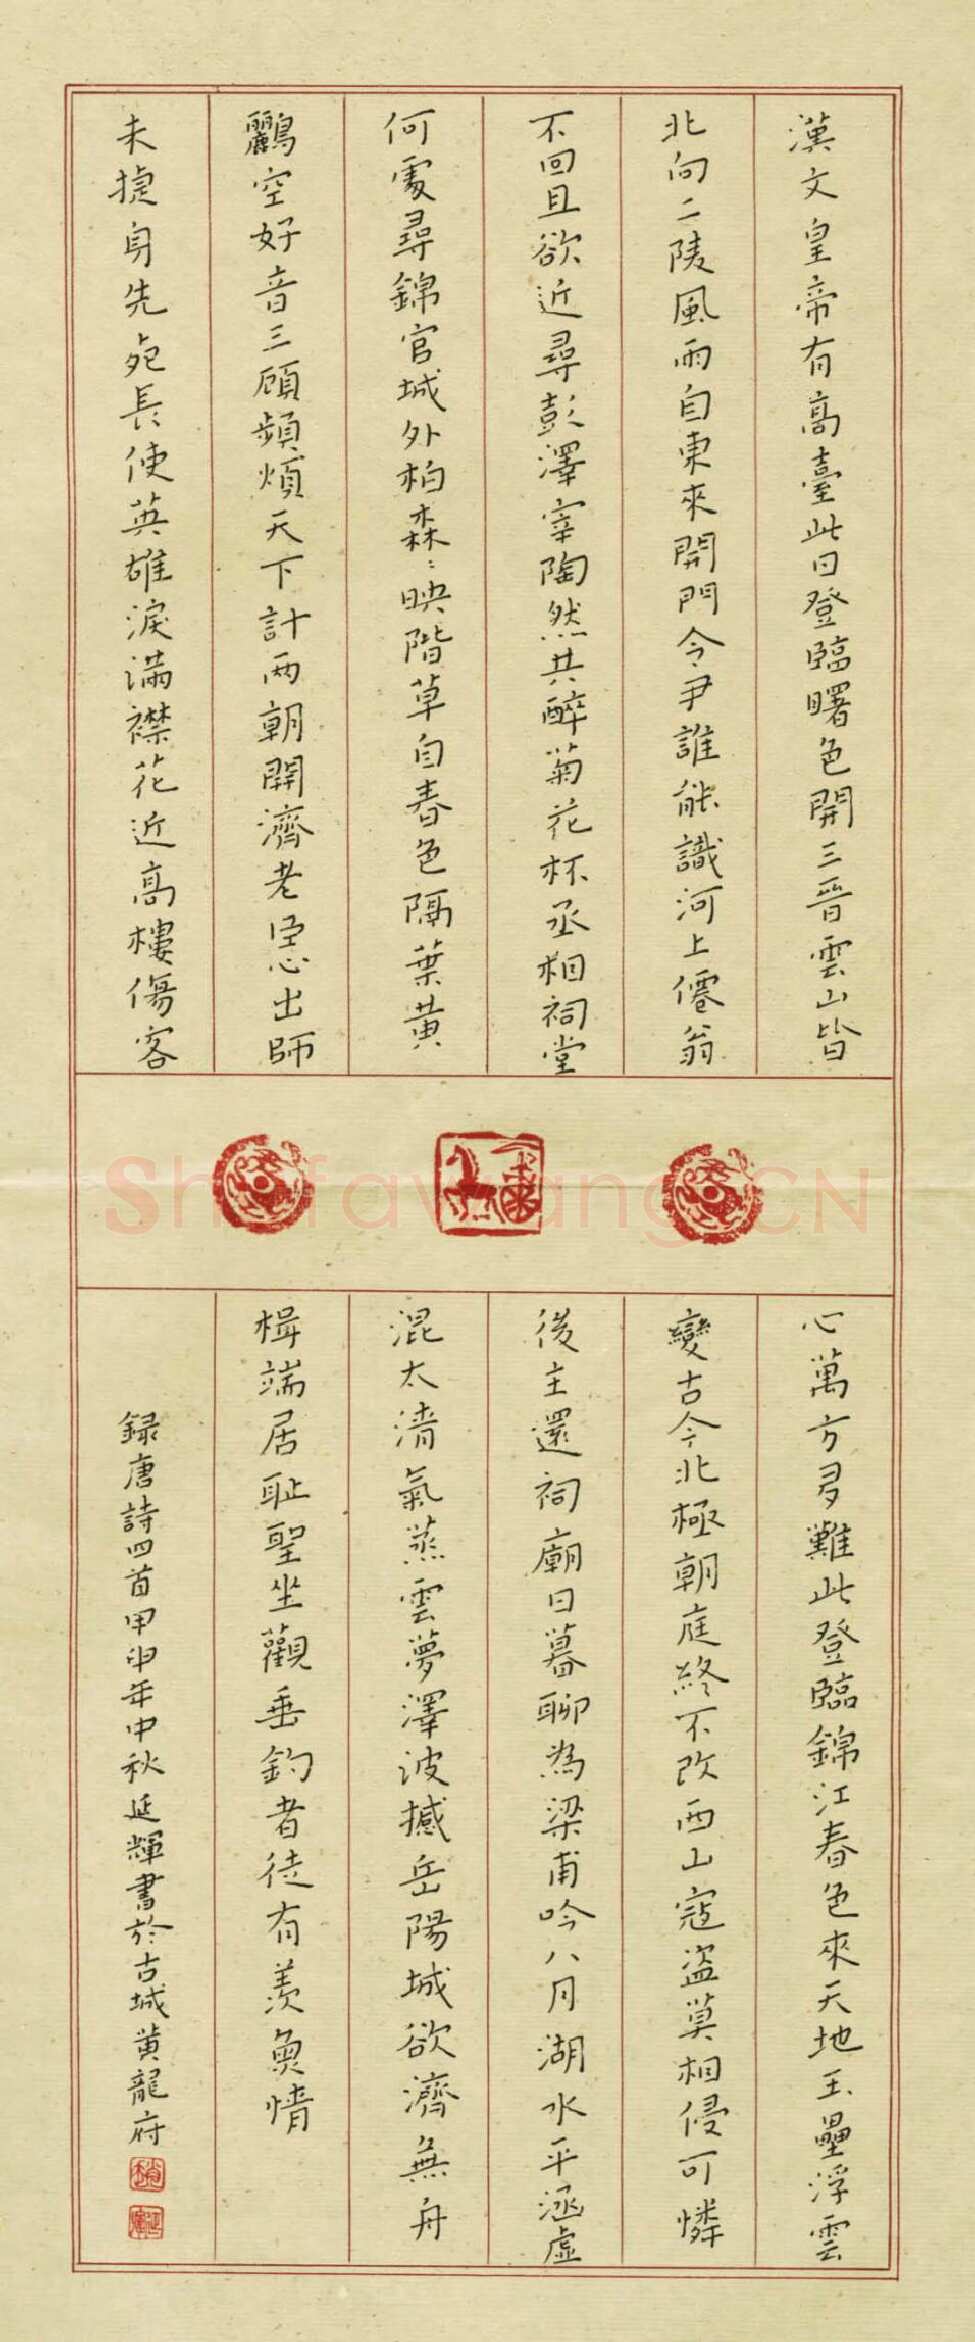 漢文皇帝有高臺此日登臨曙色開三晉雲山皆
北向二陵風雨自東來開門令尹誰能識河上僊翁
不回且欲近尋彭澤宰陶然共醉菊花杯丞相祠堂
何處尋錦官城外柏森〻映階草自春色隔葉黃
鸝空好音三顧頻煩天下計兩朝開濟老臣心出師
未捷身先死長使英雄淚滿襟花近高樓傷客
心萬方多難此登臨錦江春色來天地玉壘浮雲
變古今北極朝庭終不改西山寇盜莫相侵可憐
後主還祠廟日暮聊為梁甫吟八月湖水平涵虛
混太清氣蒸雲夢澤波撼岳陽城欲濟無舟
楫端居恥聖坐觀垂釣者徒有羨魚情
録唐詩四首甲申年中秋延輝書於古城黃龍府
ShufawangCN